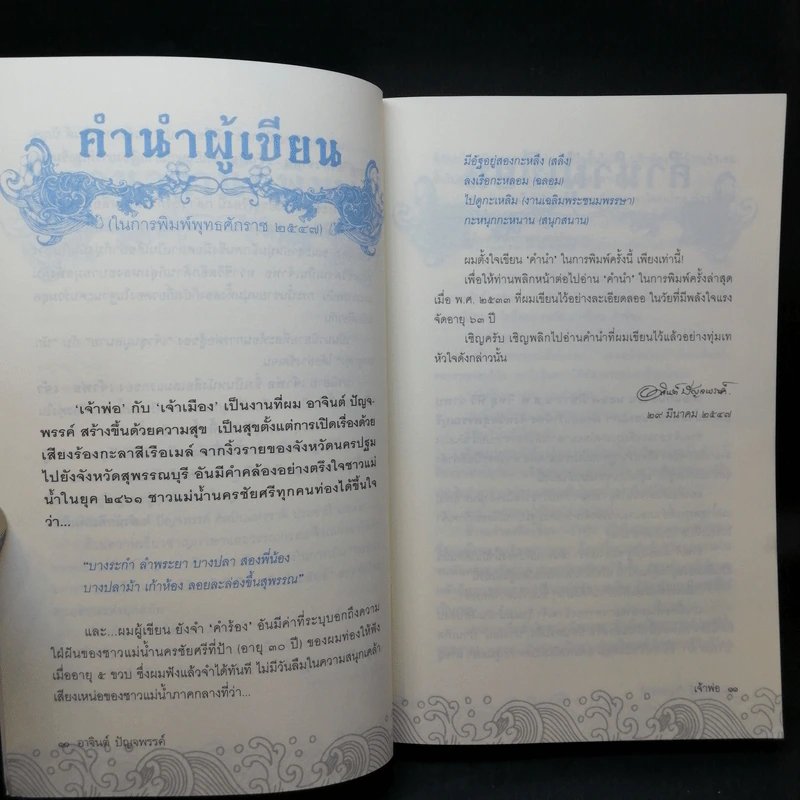 คำนำผู้เขียน
(ในการพิมพ์พุทธศักราช ๒๕๔๗)
'เจ้าพ่อ' กับ 'เจ้าเมือง' เป็นงานที่ผม อาจินต์ ปัญจ-
พรรค์ สร้างขึ้นด้วยความสุข เป็นสุขตั้งแต่การเปิดเรื่องด้วย
เสียงร้องกะลาสีเรือเมล์ จากงิ้วรายของจังหวัดนครปฐม
ไปยังจังหวัดสุพรรณบุรี อันมีคำคล้องอย่างตรึงใจชาวแม่
น้ำในยุค ๒๔๖๑ ชาวแม่น้ำนครชัยศรีทุกคนท่องได้ขึ้นใจ
ว่า...
"บางระกำ ลำพระยา บางปลา สองพี่น้อง
บางปลาม้า เก้าห้อง ลอยละล่องขึ้นสุพรรณ"
และ...ผมผู้เขียน ยังจำ 'คำร้อง' อันมีค่าที่ระบุบอกถึงความ
ใฝ่ฝันของชาวแม่น้ำนครชัยศรีที่ป้า (อายุ ๓๐ ปี) ของผมท่องให้ฟัง
เมื่ออายุ ๕ ขวบ ซึ่งผมฟังแล้วจำได้ทันที ไม่มีวันลืมในความสนุกเคล้า
เสียงเหน่อของชาวแม่น้ำภาคกลางที่ว่า...
๑๐ อาจินต์ ปัญจพรรค์
มีอัฐอยู่สองกะหลึง (สลึง)
ลงเรือกะหลอม (ฉลอม)
ไปดูกะเหลิม (งานเฉลิมพระชนมพรรษา)
กะหนุกกะหนาน (สนุกสนาน)
ผมตั้งใจเขียน 'คำนำ' ในการพิมพ์ครั้งนี้ เพียงเท่านี้!
เพื่อให้ท่านพลิกหน้าต่อไปอ่าน 'คำนำ' ในการพิมพ์ครั้งล่าสุด
เมื่อ พ.ศ. ๒๕๓๓ ที่ผมเขียนไว้อย่างละเอียดลออ ในวัยที่มีพลังใจแรง
จัดอายุ ๖๓ ปี
เชิญครับ เชิญพลิกไปอ่านคำนำที่ผมเขียนไว้แล้วอย่างทุ่มเท
หัวใจดังกล่าวนั้น
อาจินต์ ปัญจพรรค์.
๒๙ มีนาคม ๒๕๔๗
เจ้าพ่อ ๑๑